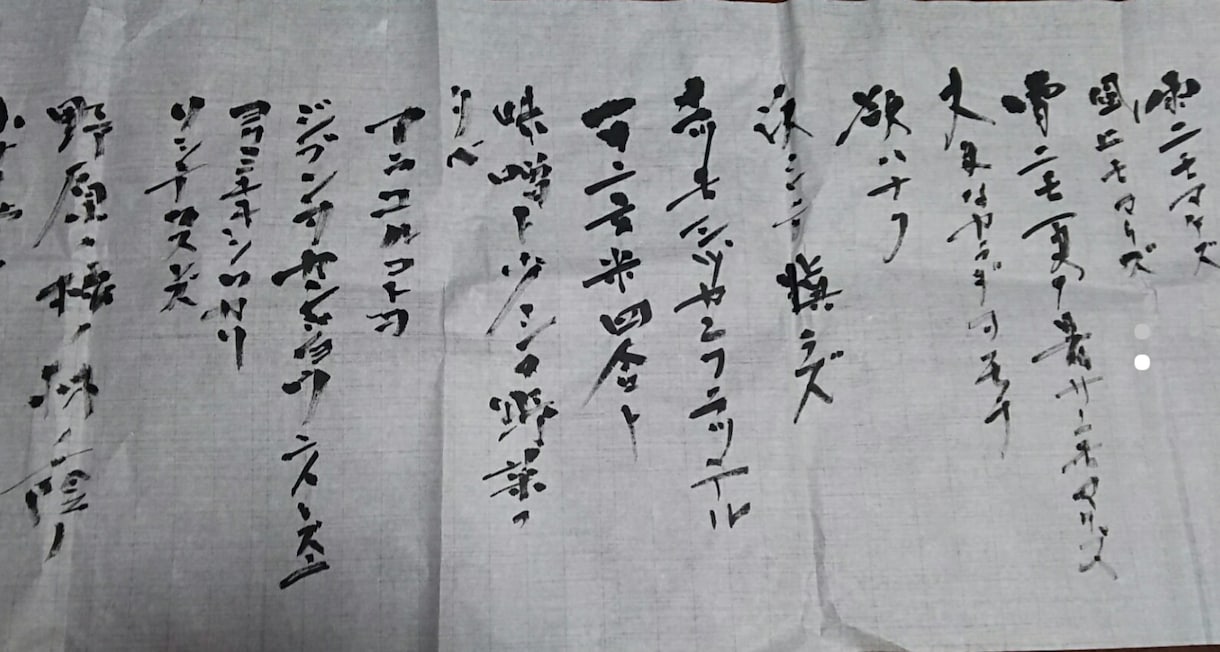 雨ニモマケズ
風ニモマケズ
雪ニモ夏ノ暑サニモマケズ
丈夫ナカラダヲモチ
欲ハナク
決シテ慎ラズ
イツモシヅカニワラッテヰル
一日ニ玄米四合ト
味噌ト少シノ野菜ヲ
タベ
アラユルコトヲ
ジブンヲカンジョウニ入レズニ
ヨクミキキシワカリ
ソシテワスレズ
野原ノ松ノ林ノ陰ノ